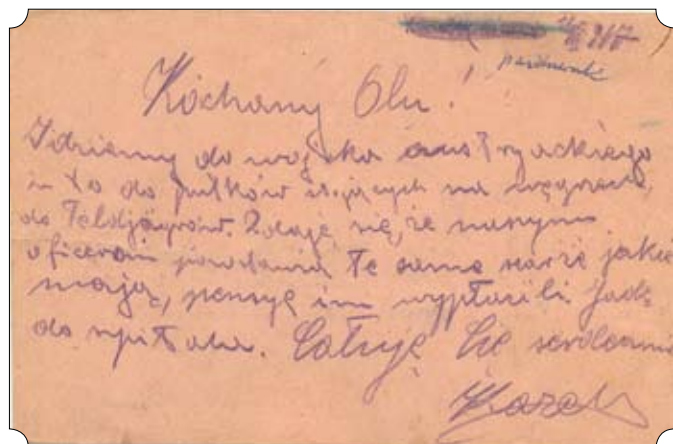 październik
Kochany Olu!
Idziemy do wojska austryackiego
i to do pułków stojących na węgrzech,
do Feldjägrów. Zdaje się, że naszym
oficerom powdania te same szarże jakie
mają, pensyę im wypłacili. Jadę
do szpitala. Całuję Cię serdecznie
Karol